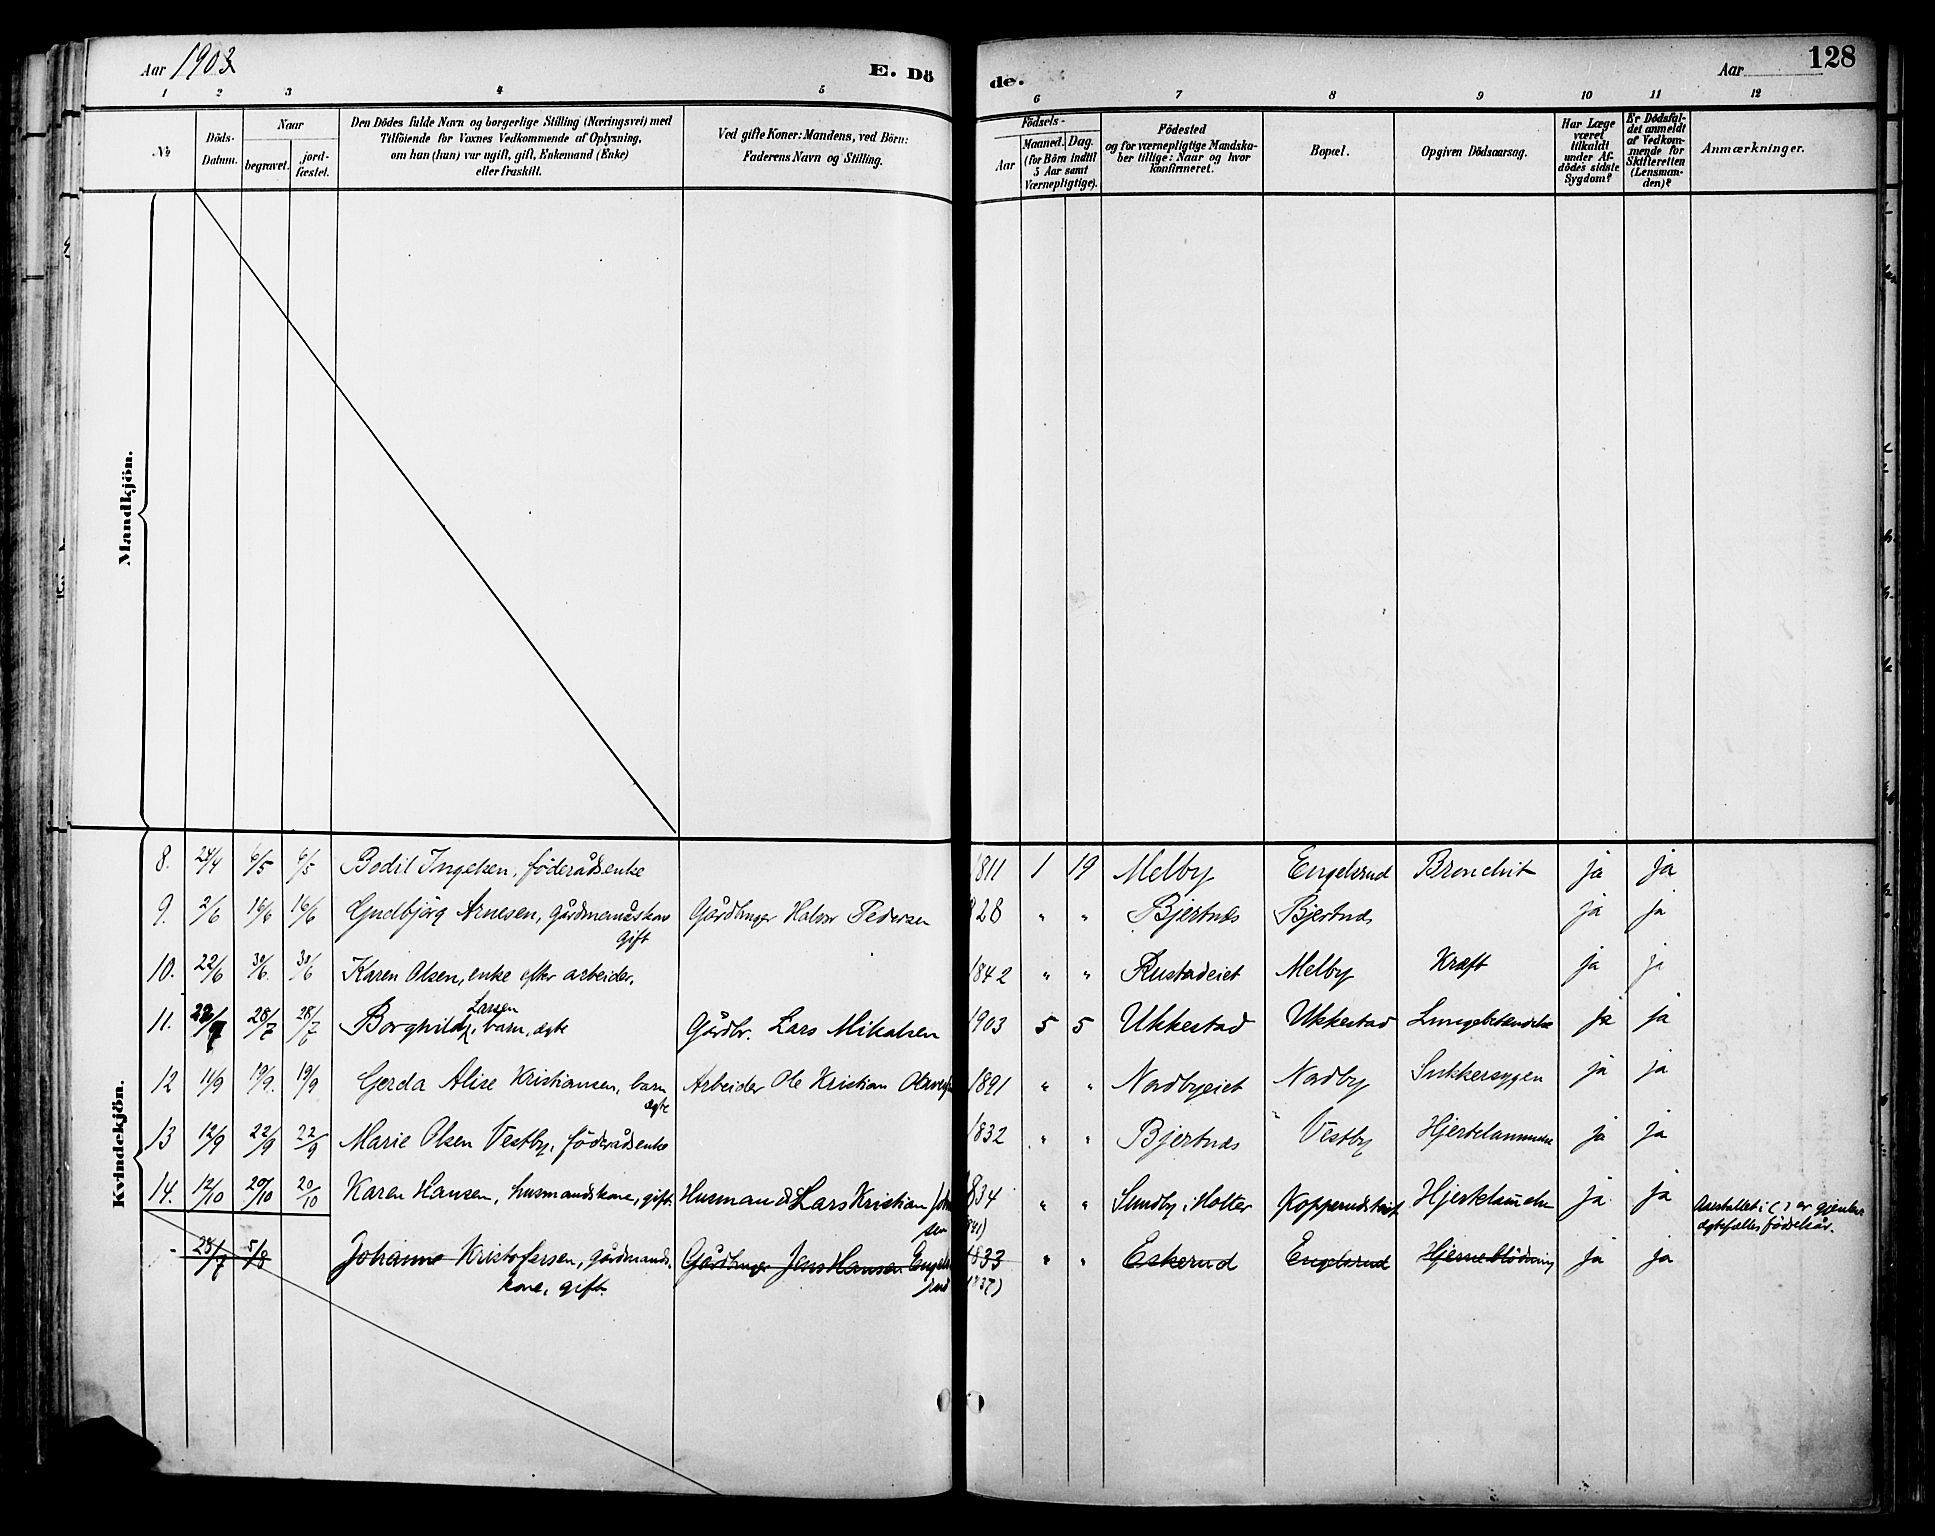 Aar 1903
E. Dö de.
Aar 128
1 2 3 4 5 6 7 8 9 10 11 12
№
Döds-Datum.
Naar
begravet.
jord-fæstet.
Den Dödes fulde Navn og borgerlige Stilling (Næringsvei) med
Tilföiende for Voxnes Vedkommende af Oplysning,
om han (hun) var ugift, gift, Enkemand (Enke)
eller fraskilt.
Ved gifte Koner: Mandens, ved Börn:
Faderens Navn og Stilling.
Födsels-
Aar
Maaned. Dag.
(for Börn indtil
5 Aar samt
Værnepligtige).
Födested
og for værnepligtige Mandska-
ber tillige: Naar og hvor
konfirmeret.
Bopæl.
Opgiven Dödsaarsag.
Har Læge
været
tilkaldt
under Af-
dödes sidste
Sygdom?
Er Dödsfal-
det anmeldt
af Vedkom-
mende for
Skifteretten
(Lensman-
den)?
Anmærkninger.
Mandkjön.
Kvindekjön.
8. 24/4 6/5 6/5 Bodil Ingelsen, föderådsenke 1811 1 19 Melby Engelsrud Bronchit ja ja
9. 2/6 16/6 16/6 Gudbjörg Arnesen, gårdmandskone Gårdbruger Halvor Pedersen 828 " " Bjertnæs Bjertnæs ja ja
gift
10. 22/6 30/6 30/6 Karen Olsen, enke efter arbeider. 1842 " " Rustadeiet Melby Kræft ja ja
Larsen
11. 22/7 28/7 28/7 Borghild, barn, ægte Gårdbr. Lars Mikalsen 1903 5 5 Ukkestad Ukkestad Lungebetændelse ja ja
12 11/9 19/9. 19/9 Gerda Alise Kristiansen, barn Arbeider Ole Kristian 1891 " " Nordbyeiet Nordby Sukkersygen ja ja
ægte
13 12/9 22/9 22/9 Marie Olsen Vestby, föderådsenke 1832 " " Bjertnæs Vestby Hjertelammelse ja ja
14. 12/10 20/10 20/10 Karen Hansen, husmandskone, gift. Husmand Lars Kristian Johan 834 " " Sundby i Holter Kopperudseiet Hjertelam̄else ja ja Aarstallet i ( ) er gjenlev.
sen 841) ægtefælles födselsår.
- 28/7 5/8 Johanne Kristofersen, gårdmands- Gårdbruger Jens Hansen Engels 1833 " " Eskerud Engelsrud Hjerneblödning ja ja
kone, gift. rud 1837)